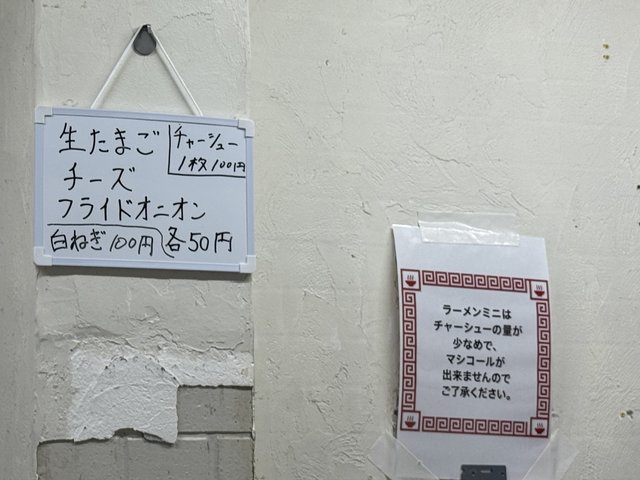 生たまご
チャーシュー
1枚100円
チーズ
フライドオニオン
各50円
白ねぎ100円
ラーメンミニは
チャーシューの量が
少なめで、
マシコールが
出来ませんので
ご了承ください。